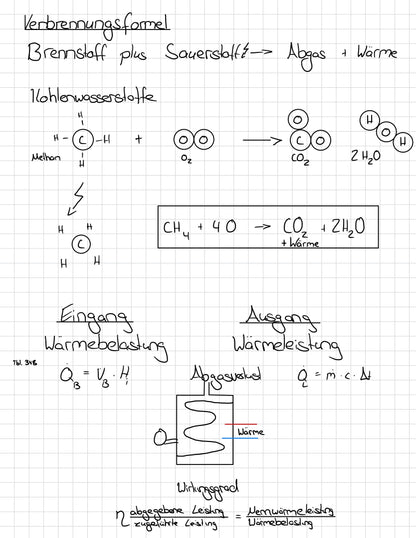 Verbrennungsformel
Brennstoff plus Sauerstoff → Abgas + Wärme
Kohlenwasserstoffe
H
H - C - H + O O → O C O H O H
Methan H O₂ CO₂ 2 H₂O
H H
C
H H
CH₄ + 4 O → CO₂ + 2H₂O
+ Wärme
Eingang Ausgang
Wärmebelastung Wärmeleistung
Q_B = V_B · H_i Q_L = ṁ · c · Δt
Abgasverlust
Wärme
Wirkungsgrad
η abgegebene Leistung / zugeführte Leistung = Nennwärmeleistung / Wärmebelastung